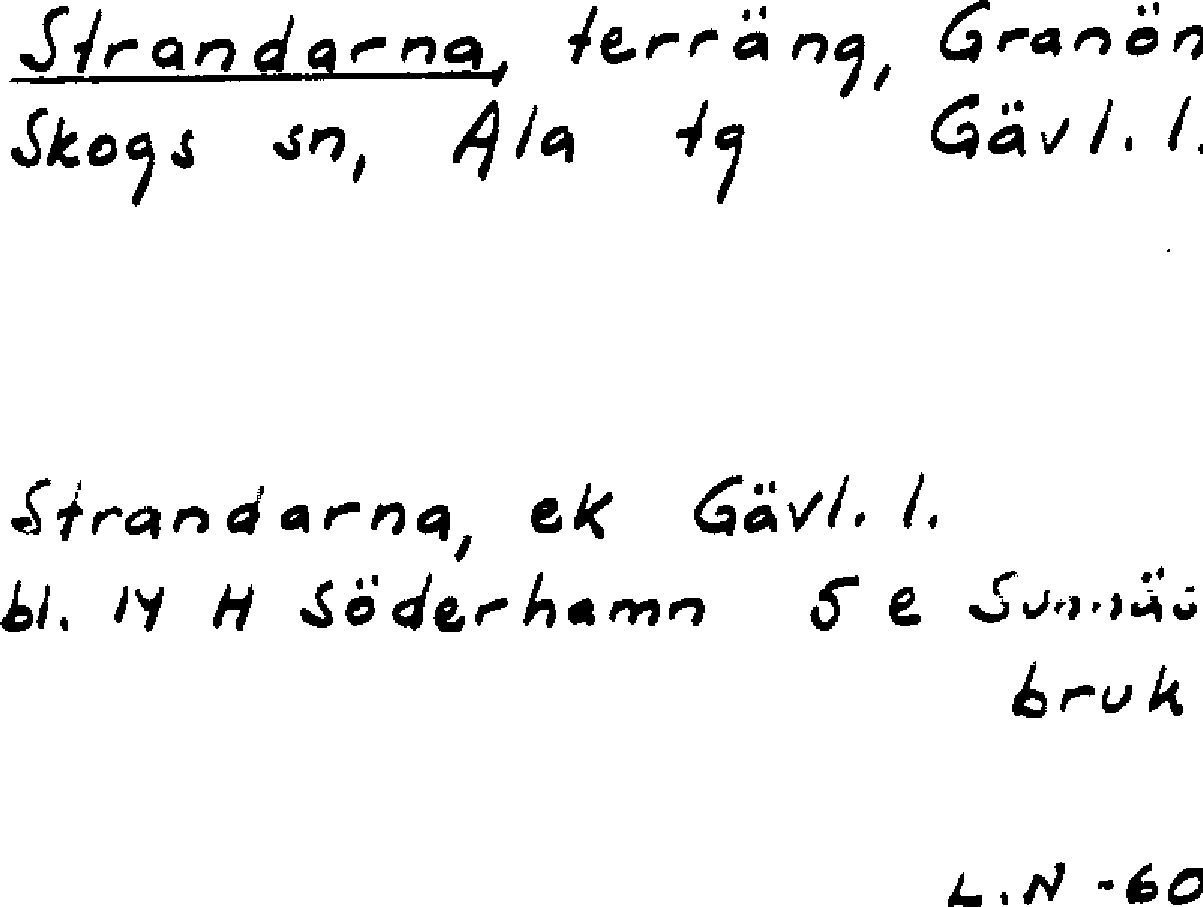 Strandarna, terräng, Granön
Skogs sn, Ala tg Gävl. l.
Strandarna, ek Gävl. l.
bl. 14 H Söderhamn 5 e
bruk
L.N -60